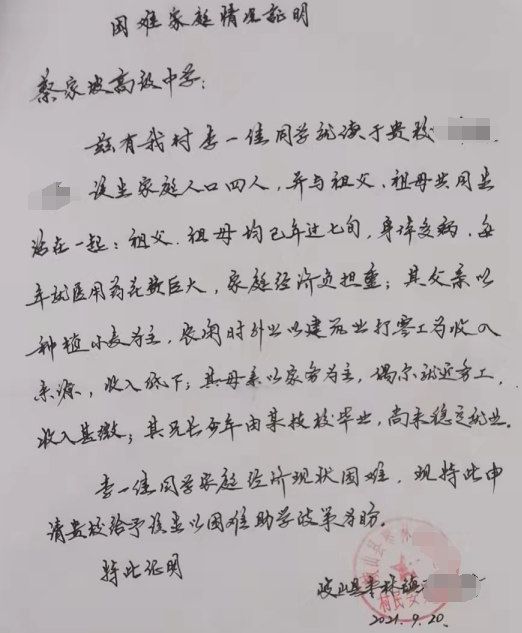 困难家庭情况证明
蔡家坡高级中学：
兹有我村李一佳同学就读于贵校
该生家庭人口四人，并与祖父、祖母共同生
活在一起：祖父、祖母均已年过七旬，身体多病，每
年就医用药花费巨大，家庭经济负担重；其父亲以
种植小麦为主，农闲时外出以建筑业打零工为收入
来源，收入低下；其母亲以家务为主，偶尔就近务工，
收入甚微；其兄长今年由某技校毕业，尚未稳定就业。
李一佳同学家庭经济现状困难，现特此申
请贵校给予该生以困难助学政策为盼。
特此证明
岐山县枣林镇
2021.9.20.
山县枣林
村民委